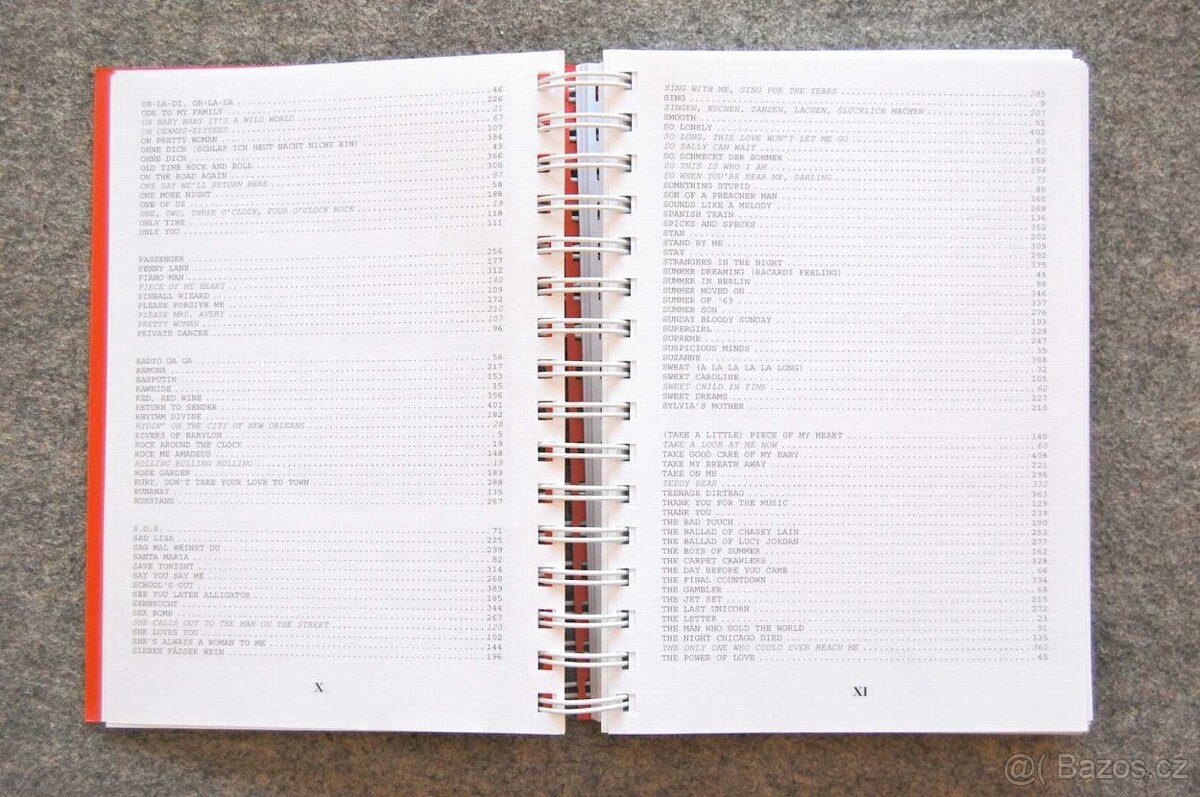 OB-LA-DI, OB-LA-DA ... 46
ODE TO MY FAMILY ... 226
OH BABY BABY IT'S A WILD WORLD ... 21
OH CHAMPS-ELYSEES ... 67
OH PRETTY WOMAN ... 107
OHNE DICH (SCHLAF ICH HEUT NACHT NICHT EIN) ... 384
OHNE DICH ... 43
OLD TIME ROCK AND ROLL ... 366
ON THE ROAD AGAIN ... 300
ONE DAY WE'LL RETURN HERE ... 87
ONE MORE NIGHT ... 58
ONE OF US ... 188
ONE, TWO, THREE O'CLOCK, FOUR O'CLOCK ROCK ... 19
ONLY TIME ... 118
ONLY YOU ... 111
PASSENGER ... 256
PENNY LANE ... 177
PIANO MAN ... 312
PIECE OF MY HEART ... 140
PINBALL WIZARD ... 109
PLEASE FORGIVE ME ... 172
PLEASE MRS. AVERY ... 210
PRETTY WOMAN ... 107
PRIVATE DANCER ... 96
RADIO GA GA ... 56
RAMONA ... 217
RASPUTIN ... 153
RAWHIDE ... 15
RED, RED WINE ... 356
RETURN TO SENDER ... 401
RHYTHM DIVINE ... 182
RIDIN' ON THE CITY OF NEW ORLEANS ... 28
RIVERS OF BABYLON ... 5
ROCK AROUND THE CLOCK ... 19
ROCK ME AMADEUS ... 148
ROLLING ROLLING ROLLING ... 15
ROSE GARDEN ... 183
RUBY, DON'T TAKE YOUR LOVE TO TOWN ... 288
RUNAWAY ... 135
RUSSIANS ... 257
S.O.S. ... 71
SAD LISA ... 225
SAG MAL WEINST DU ... 299
SANTA MARIA ... 82
SAVE TONIGHT ... 314
SAY YOU SAY ME ... 260
SCHOOL'S OUT ... 389
SEE YOU LATER ALLIGATOR ... 185
SEHNSUCHT ... 344
SEX BOMB ... 267
SHE CALLS OUT TO THE MAN ON THE STREET ... 120
SHE LOVES YOU ... 102
SHE'S ALWAYS A WOMAN TO ME ... 144
SIEBEN FÄSSER WEIN ... 196
X
SING WITH ME, SING FOR THE YEARS ... 285
SING ... 9
SINGEN, KOCHEN, TANZEN, LACHEN, GLÜCKLICH MACHEN ... 207
SMOOTH ... 51
SO LONELY ... 402
SO LONG, THIS LOVE WON'T LET ME GO ... 65
SO SALLY CAN WAIT ... 42
SO SCHMECKT DER SOMMER ... 159
SO THIS IS WHO I AM ... 164
SO WHEN YOU'RE NEAR ME, DARLING ... 71
SOMETHING STUPID ... 86
SON OF A PREACHER MAN ... 360
SOUNDS LIKE A MELODY ... 268
SPANISH TRAIN ... 136
SPICKS AND SPECKS ... 352
STAN ... 202
STAND BY ME ... 309
STAY ... 292
STRANGERS IN THE NIGHT ... 375
SUMMER DREAMING (BACARDI FEELING) ... 44
SUMMER IN BERLIN ... 88
SUMMER MOVED ON ... 346
SUMMER OF '69 ... 337
SUMMER SON ... 276
SUNDAY BLOODY SUNDAY ... 193
SUPERGIRL ... 229
SUPREME ... 247
SUSPICIOUS MINDS ... 35
SUZANNE ... 388
SWEAT (A LA LA LA LA LONG) ... 32
SWEET CAROLINE ... 105
SWEET CHILD IN TIME ... 62
SWEET DREAMS ... 227
SYLVIA'S MOTHER ... 210
(TAKE A LITTLE) PIECE OF MY HEART ... 140
TAKE A LOOK AT ME NOW ... 60
TAKE GOOD CARE OF MY BABY ... 408
TAKE MY BREATH AWAY ... 221
TAKE ON ME ... 296
TEDDY BEAR ... 332
TEENAGE DIRTBAG ... 363
THANK YOU FOR THE MUSIC ... 129
THANK YOU ... 239
THE BAD TOUCH ... 190
THE BALLAD OF CHASEY LAIN ... 253
THE BALLAD OF LUCY JORDAN ... 277
THE BOYS OF SUMMER ... 162
THE CARPET CRAWLERS ... 328
THE DAY BEFORE YOU CAME ... 66
THE FINAL COUNTDOWN ... 394
THE GAMBLER ... 68
THE JET SET ... 215
THE LAST UNICORN ... 272
THE LETTER ... 23
THE MAN WHO SOLD THE WORLD ... 91
THE NIGHT CHICAGO DIED ... 335
THE ONLY ONE WHO COULD EVER REACH ME ... 360
THE POWER OF LOVE ... 45
XI
@( Bazos.cz